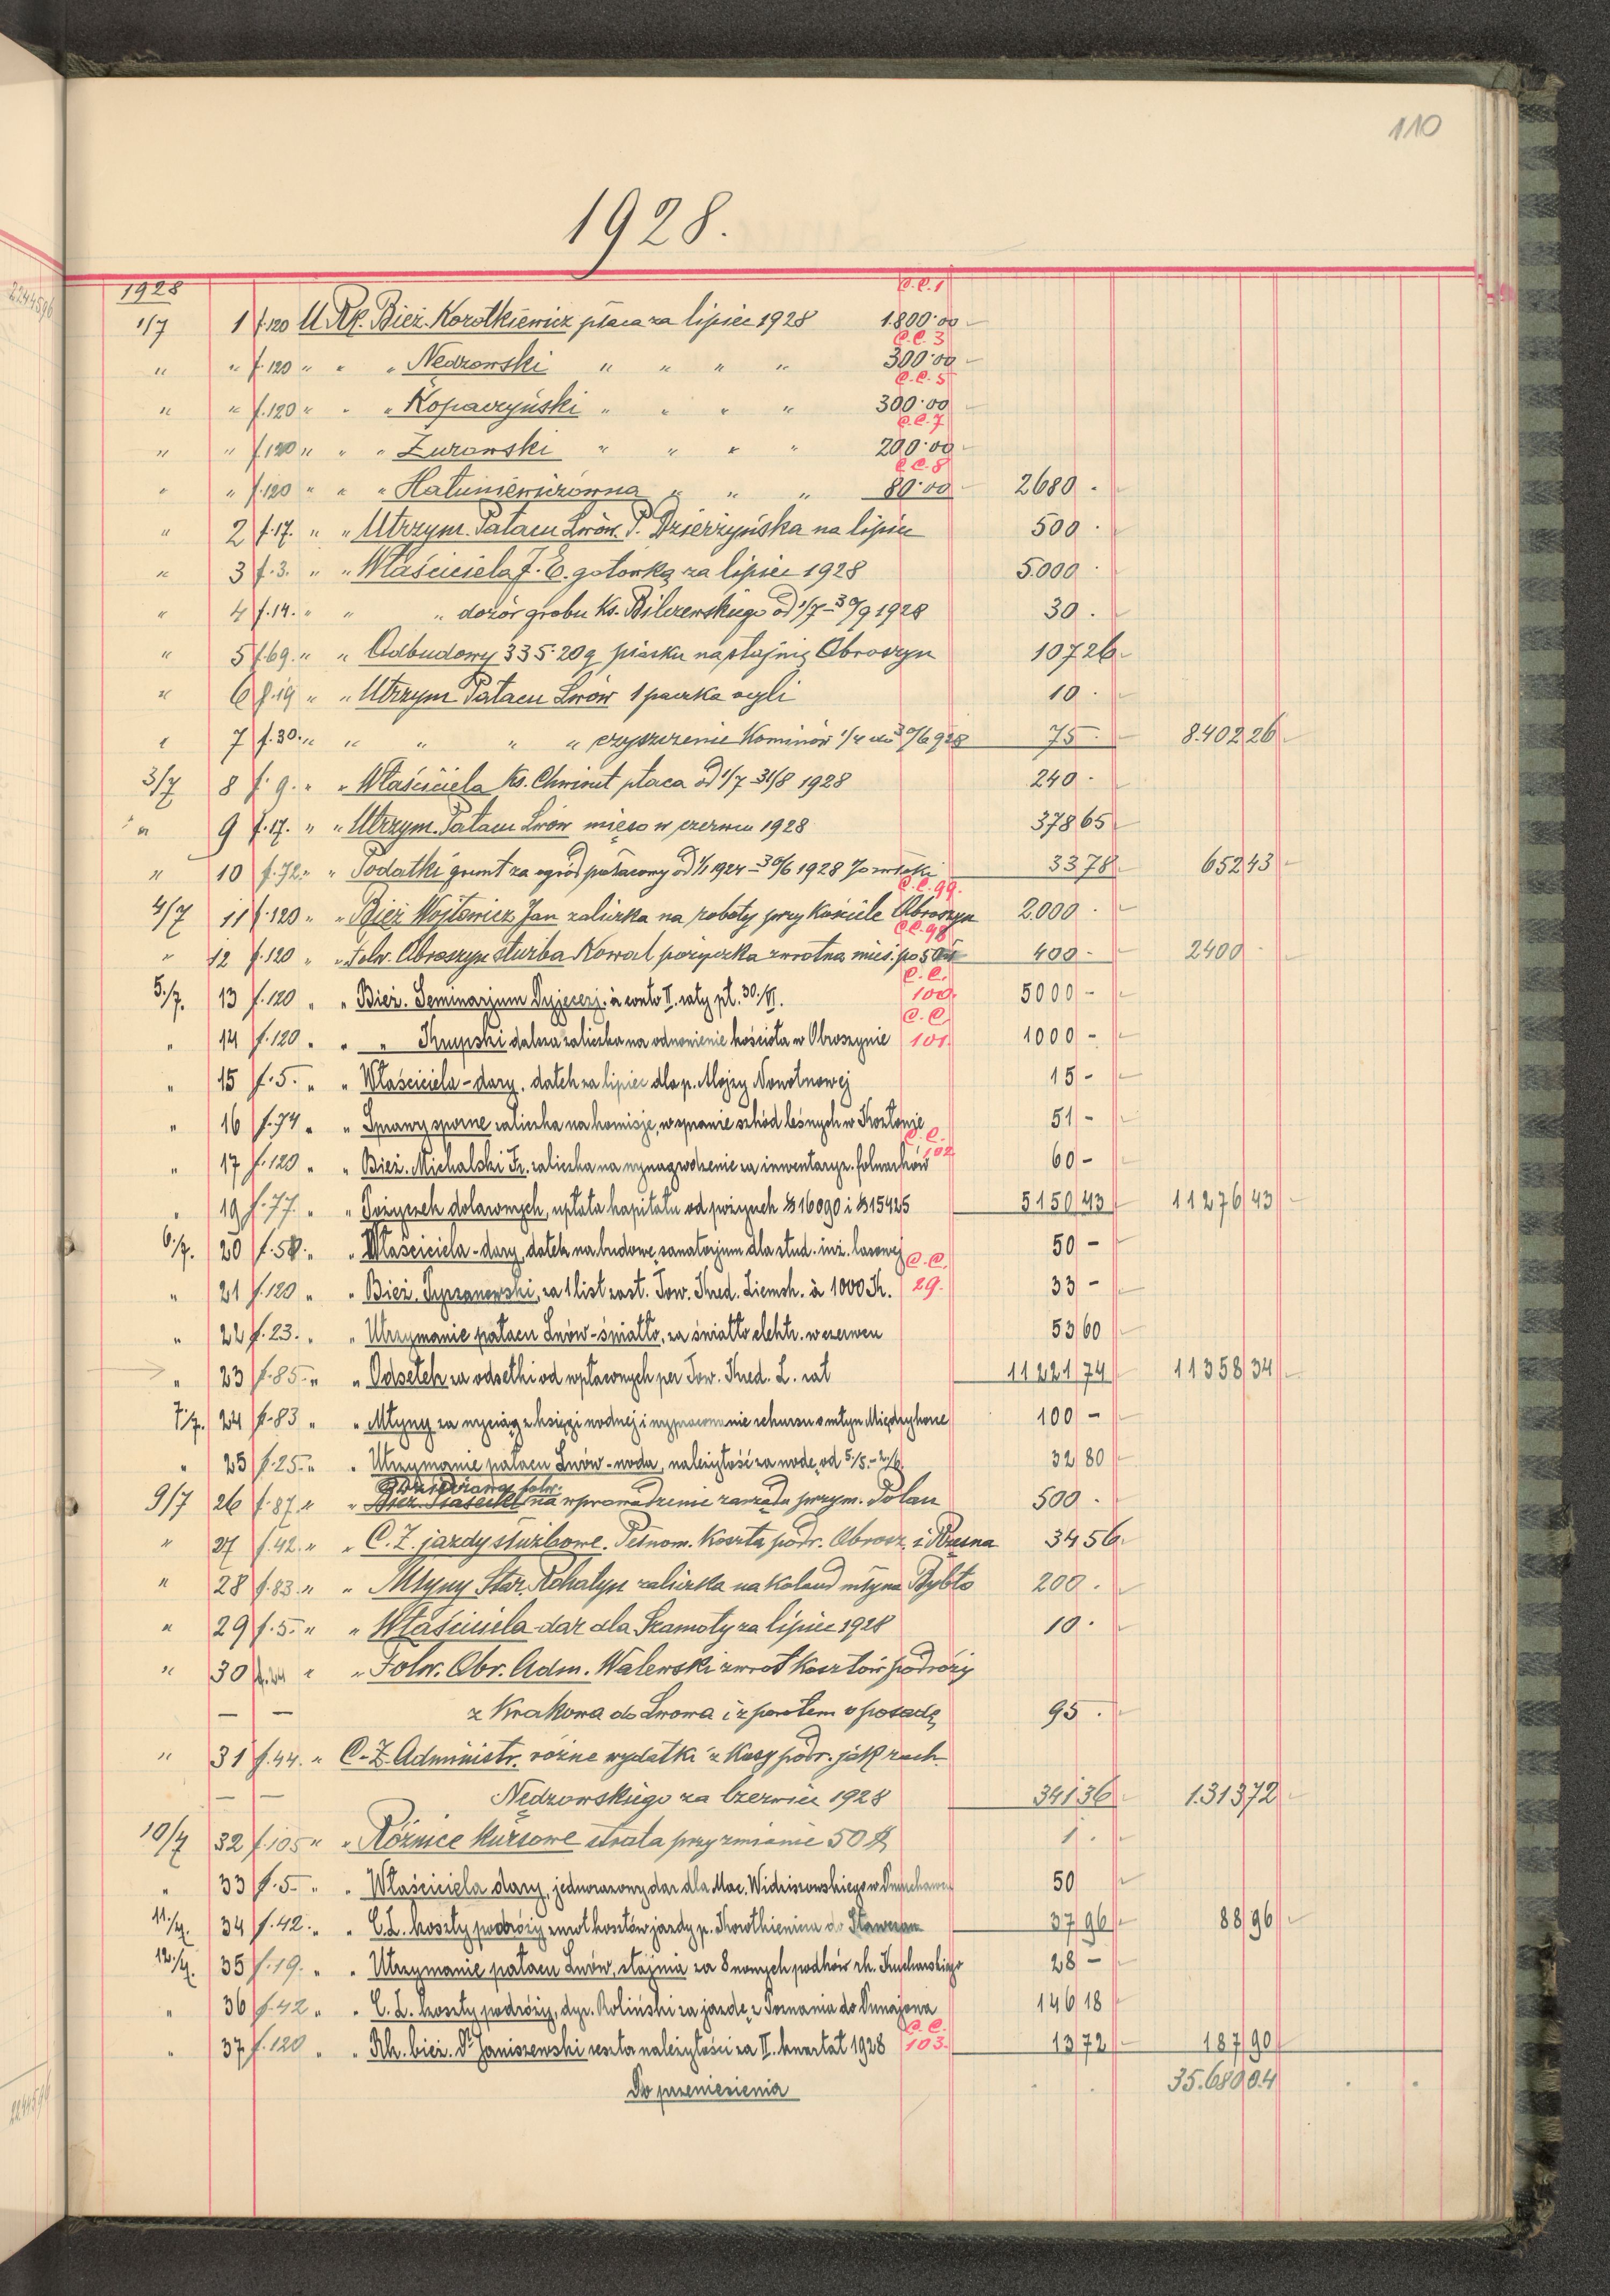 110
1928.
1928 C.C. 1
1/7 1 f.120 U Rk. Bież. Korotkiewicz płaca za lipiec 1928 1.800·00
C.C. 3
" " f.120 " " " Nedzowski " " " " 300·00
C.C. 5
" " f.120 " " " Kopaczyński " " " " 300·00
C.C. 7
" " f.120 " " " Żurowski " " " " 200·00
C.C. 8
" " f.120 " " " Hatuniewiczówna " " " 80·00 2680 .
" 2 f.17. " " Utrzym. Pałacu Lwów. P. Dzierżyńska na lipiec 500 .
" 3 f.3. " " Właściciela J.E. gotówką za lipiec 1928 5.000 .
" 4 f.14. " " " dozór grobu Ks. Bilczewskiego od 1/7-30/9 1928 30 .
" 5 f.69. " " Odbudowy 335·20 q piasku na stajnię Obroszyn 107 26
" 6 f.19 " " Utrzym Pałacu Lwów 1 paczka 10 .
" 7 f.30. " " " " " czyszczenie Kominów 1/4 do 30/6 928 75 . 8.402 26
3/7 8 f. 9. " " Właściciela Ks. Chwirut płaca od 1/7-31/8 1928 240 .
" 9 f.17. " " Utrzym. Pałacu Lwów mięso w czerwcu 1928 378 65
" 10 f.72. " " Podatki grunt za ogród pałacowy od 1/1 1924-30/6 1928 33 78 652 43
C.C. 99.
4/7 11 f.120 " " Bież Wojtowicz Jan zaliczka na roboty przy Kościele Obroszyn 2.000 .
C.C. 98
" 12 f.120 " " Folw. Obroszyn służba Kowal pożyczka zwrotna mies. po 50 400 . 2400 .
C.C.
5./7. 13 f.120 " " Bież. Seminarjum Dyjecezj. à conto II. raty pł. 30./VI. 100. 5000 -
C.C.
" 14 f.120 " " " Krupski dalsza zaliczka na odnowienie kościoła w Obroszynie 101. 1000 -
" 15 f.5. " " Właściciela - dary, datek za lipiec dla p. Mojzy Nowotnowej 15 -
" 16 f.74 " " Sprawy sporne zaliczka na komisję w sprawie szkód leśnych w Kozłowie 51 -
C.C.
" 17 f.120 " " Bież. Michalski Fr. zaliczka na wynagrodzenie za inwentaryz. folwarków 102 60 -
" 19 f.77. " " Pożyczek dolarowych, upłata kapitału od pożyczek $ 16090 i $ 15425 5150 43 11276 43
6./7. 20 f.5. " " Właściciela - dary, datek na budowę sanatorjum dla stud. inż. lasowej 50 -
C.C.
" 21 f.120 " " Bież. , za 1 list zast. Tow. Kred. Ziemsk. à 1000 K. 29. 33 -
" 22 f.23. " " Utrzymanie pałacu Lwów - światło, za światło elektr. w czerwcu 53 60
" 23 f.85. " " Odsetek za odsetki od wpłaconych per Tow. Kred. Z. rat 11221 74 11358 34
7./7. 24 f.83 " " Młyny za wyciąg z księgi wodnej i wypracowanie rekursu o młyn Międzyhorce 100 -
" 25 f.25. " " Utrzymanie pałacu Lwów - woda, należytość za wodę od 5/5. - 2/6. 32 80
Dzierżawa folw.
9/7 26 f.87. " " na wprowadzenie zarządu przym. Polan 500 .
" 27 f.42. " " C.Z. jazdy służbowe. Pełnom. Koszta podr. Obrosz. i Rzęsna 34 56
" 28 f.83. " " Młyny Star. Rohatyn zaliczka na Kolaud młyna Bybło 200 .
" 29 f.5. " " Właściciela dar dla Szamoty za lipiec 1928 10 .
" 30 " " Folw. Obr. Adm. Walewski zwrot kosztów podróży
— — z Krakowa do Lwowa i z powrotem o posadę 95 .
" 31 f.44. " C.Z. Administr. różne wydatki z Kasy podr. jak rach.
— — Nędzowskiego za Czerwiec 1928 341 36 1.313 72
10/7 32 f.105 " " Różnice kursowe strata przy zmianie 50 $ 1 .
" 33 f.5. " " Właściciela dary, jednorazowy dar dla Mac. Widziszowskiego w 50
11./7. 34 f.42. " " C.Z. koszty podróży zwrot kosztów jazdy p. Korotkiewicza do 37 96 88 96
12./7. 35 f.19. " " Utrzymanie pałacu Lwów, stajnia za 8 nowych podków rk. Kucharskiego 28 -
" 36 f.42 " " C.Z. koszty podróży, dyr. Roliński za jazdę z Poznania do Dunajowa 146 18
C.C.
" 37 f.120 " " Rk. bież. Dr Janiszewski reszta należytości za II. kwartał 1928 103. 13 72 187 90
Do przeniesienia 35.680 04